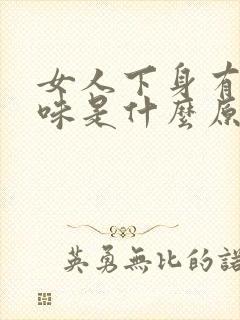 女人下身有
味是什麼原
英勇無比的諾